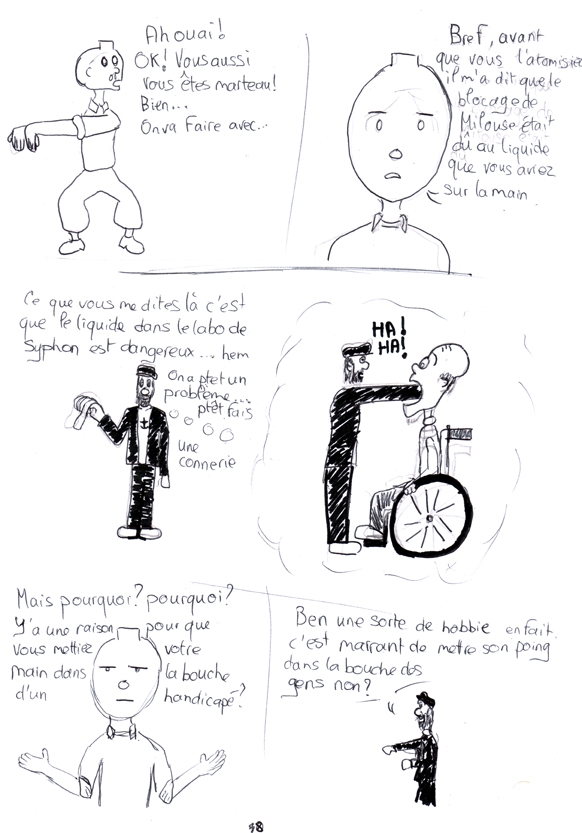 Ah ouai!
OK! Vous aussi
vous êtes marteau!
Bien...
On va faire avec...
Bref, avant
que vous l'atomisiez
il m'a dit que le
blocage de
Milouse était
dû au liquide
que vous aviez
sur la main
Ce que vous me dites là c'est
que le liquide dans le labo de
Syphon est dangereux... hem
On a ptet un
problème...
ptêt fais
une
connerie
HA!
HA!
Mais pourquoi? pourquoi?
Y'a une raison pour que
vous mettiez votre
main dans la bouche
d'un handicapé?
Ben une sorte de hobbie en fait.
c'est marrant de metre son poing
dans la bouche des
gens non?
38